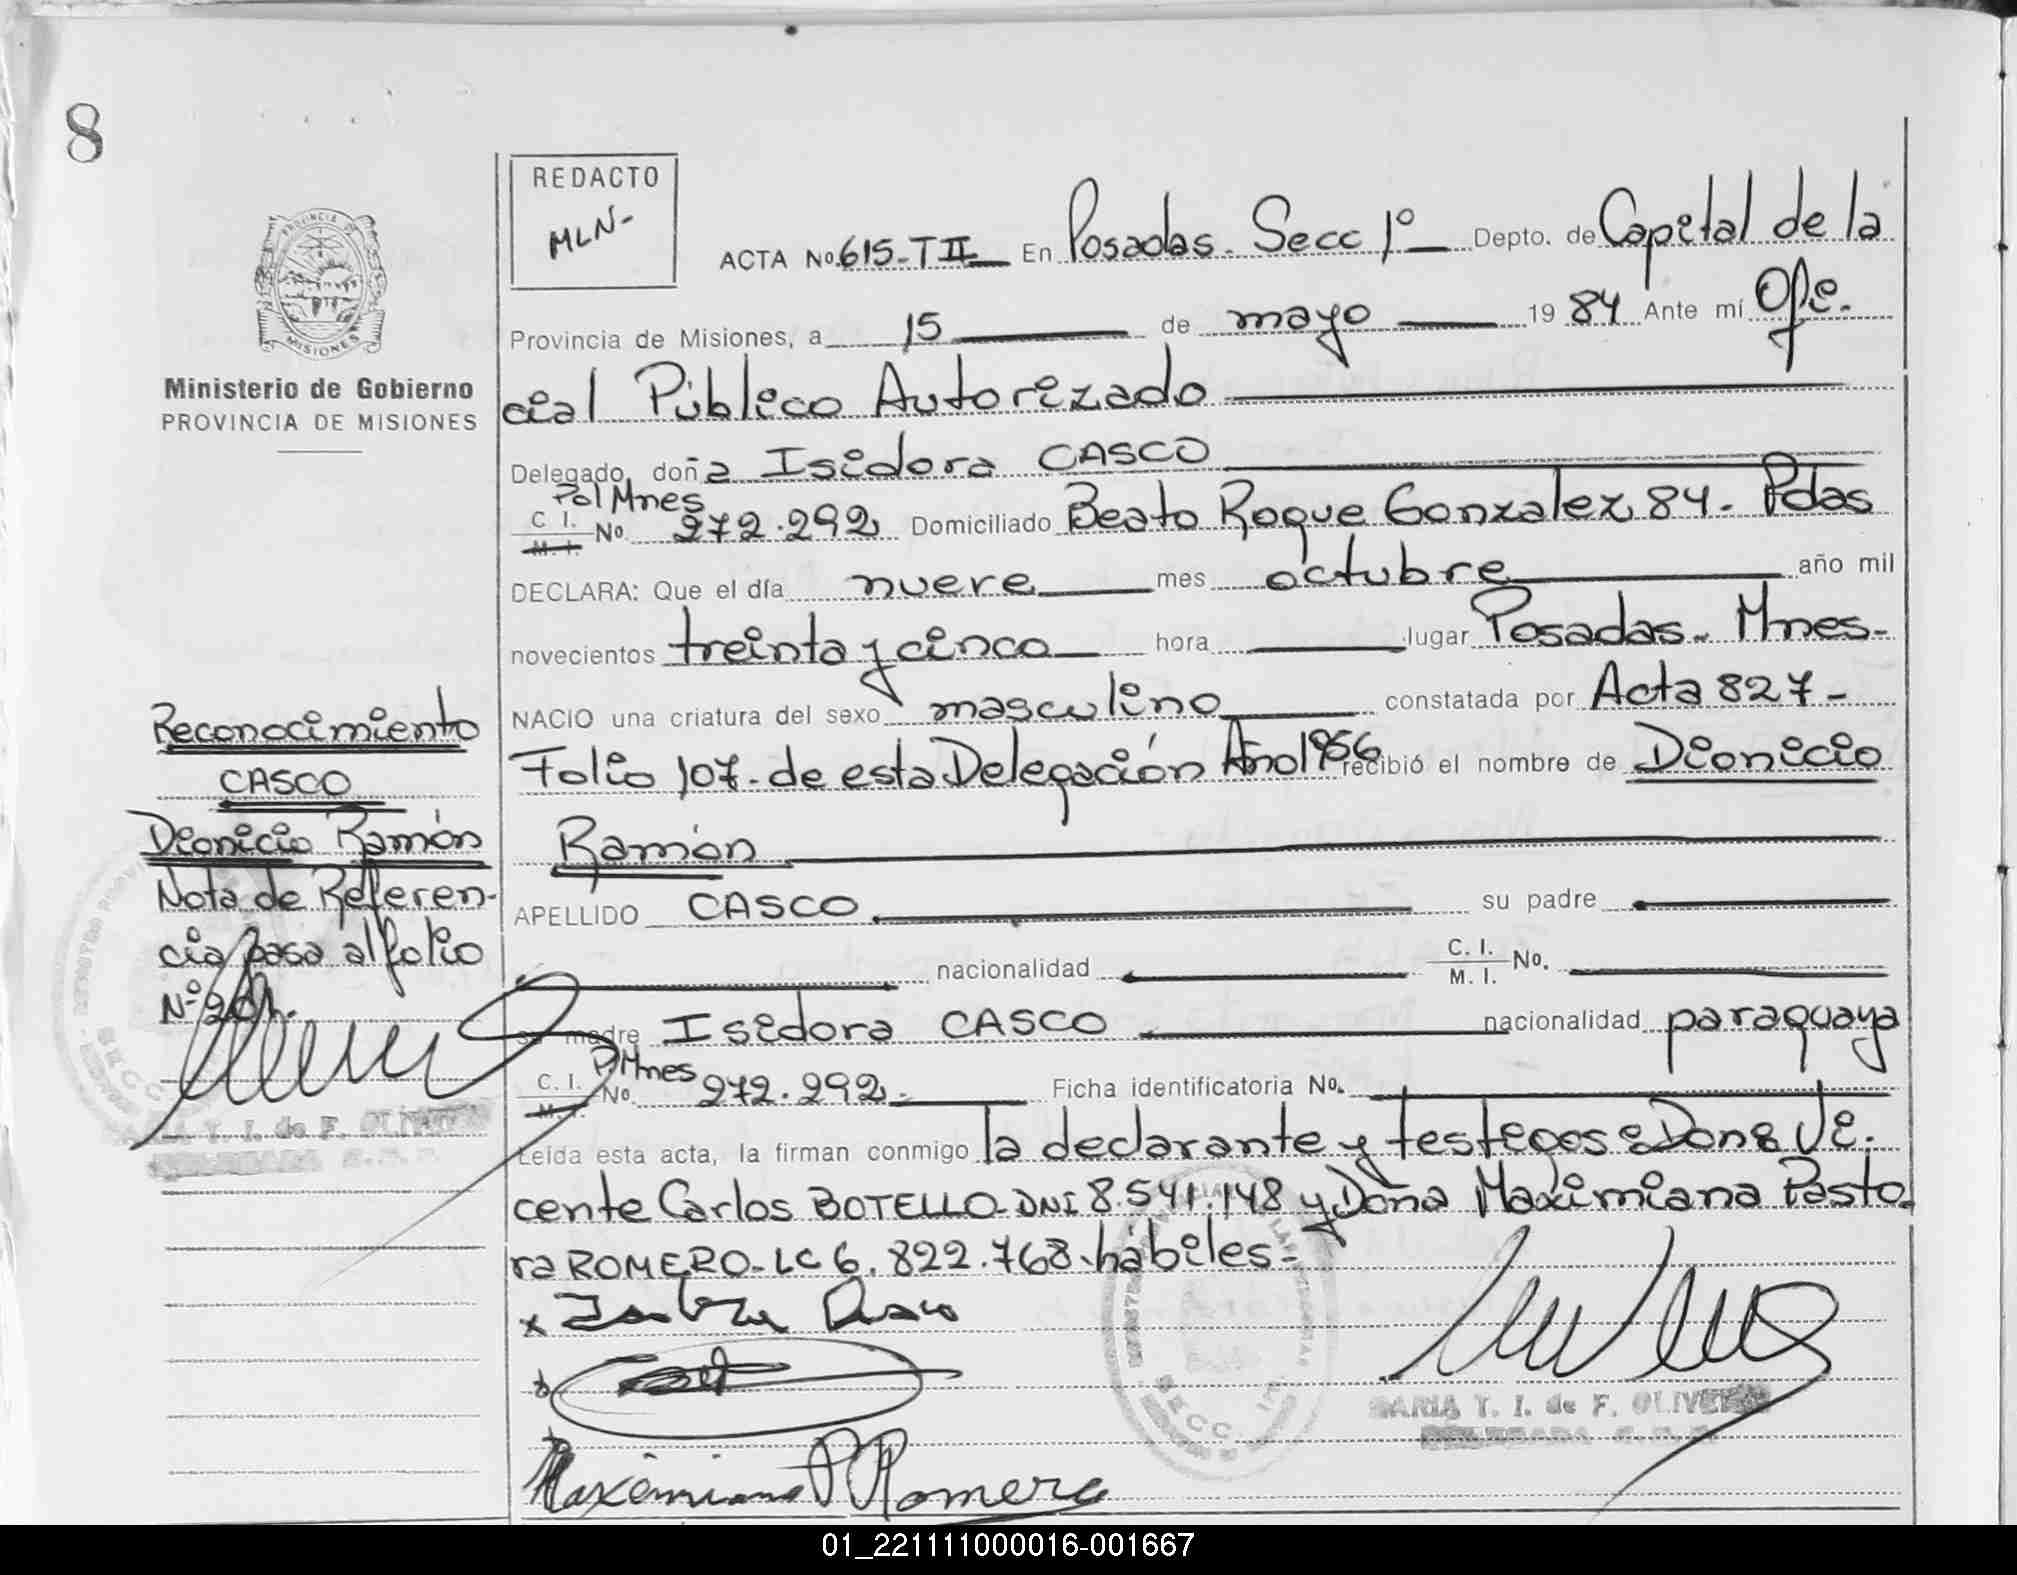 8
REDACTO
MLN-
ACTA No. 615-T II En Posadas. Secc 1° Depto. de Capital de la
Provincia de Misiones, a 15 de mayo 1984 Ante mí Ofi-
cial Público Autorizado
Delegado, doña Isidora CASCO
Pol Mnes
C. I. M. I. No. 272.292 Domiciliado Beato Roque Gonzalez 84. Pdas
DECLARA: Que el día nueve mes octubre año mil
novecientos treinta y cinco hora lugar Posadas. Mnes-
NACIO una criatura del sexo masculino constatada por Acta 827-
Folio 107- de esta Delegación Año 1956 recibió el nombre de Dionicio
Ramón
APELLIDO CASCO su padre
nacionalidad C. I. M. I. No.
su madre Isidora CASCO nacionalidad paraguaya
P. Mnes
C. I. M. I. No. 272.292. Ficha identificatoria No.
Leída esta acta, la firman conmigo la declarante y testigos: Dons Vi-
cente Carlos BOTELLO- DNI 8.541.148 y Doña Maximiana Pasto-
ra ROMERO- LC 6.822.768. hábiles-
x
Maximiana P Romero
MARIA T. I. de F. OLIVEIRA
DELEGADA
PROVINCIA DE
MISIONES
Ministerio de Gobierno
PROVINCIA DE MISIONES
Reconocimiento
CASCO
Dionicio Ramón
Nota de Referen-
cia pasa al folio
Nº 201.
T. I. de F. OLIVEIRA
DELEGADA
SECC. 1a.
01_221111000016-001667